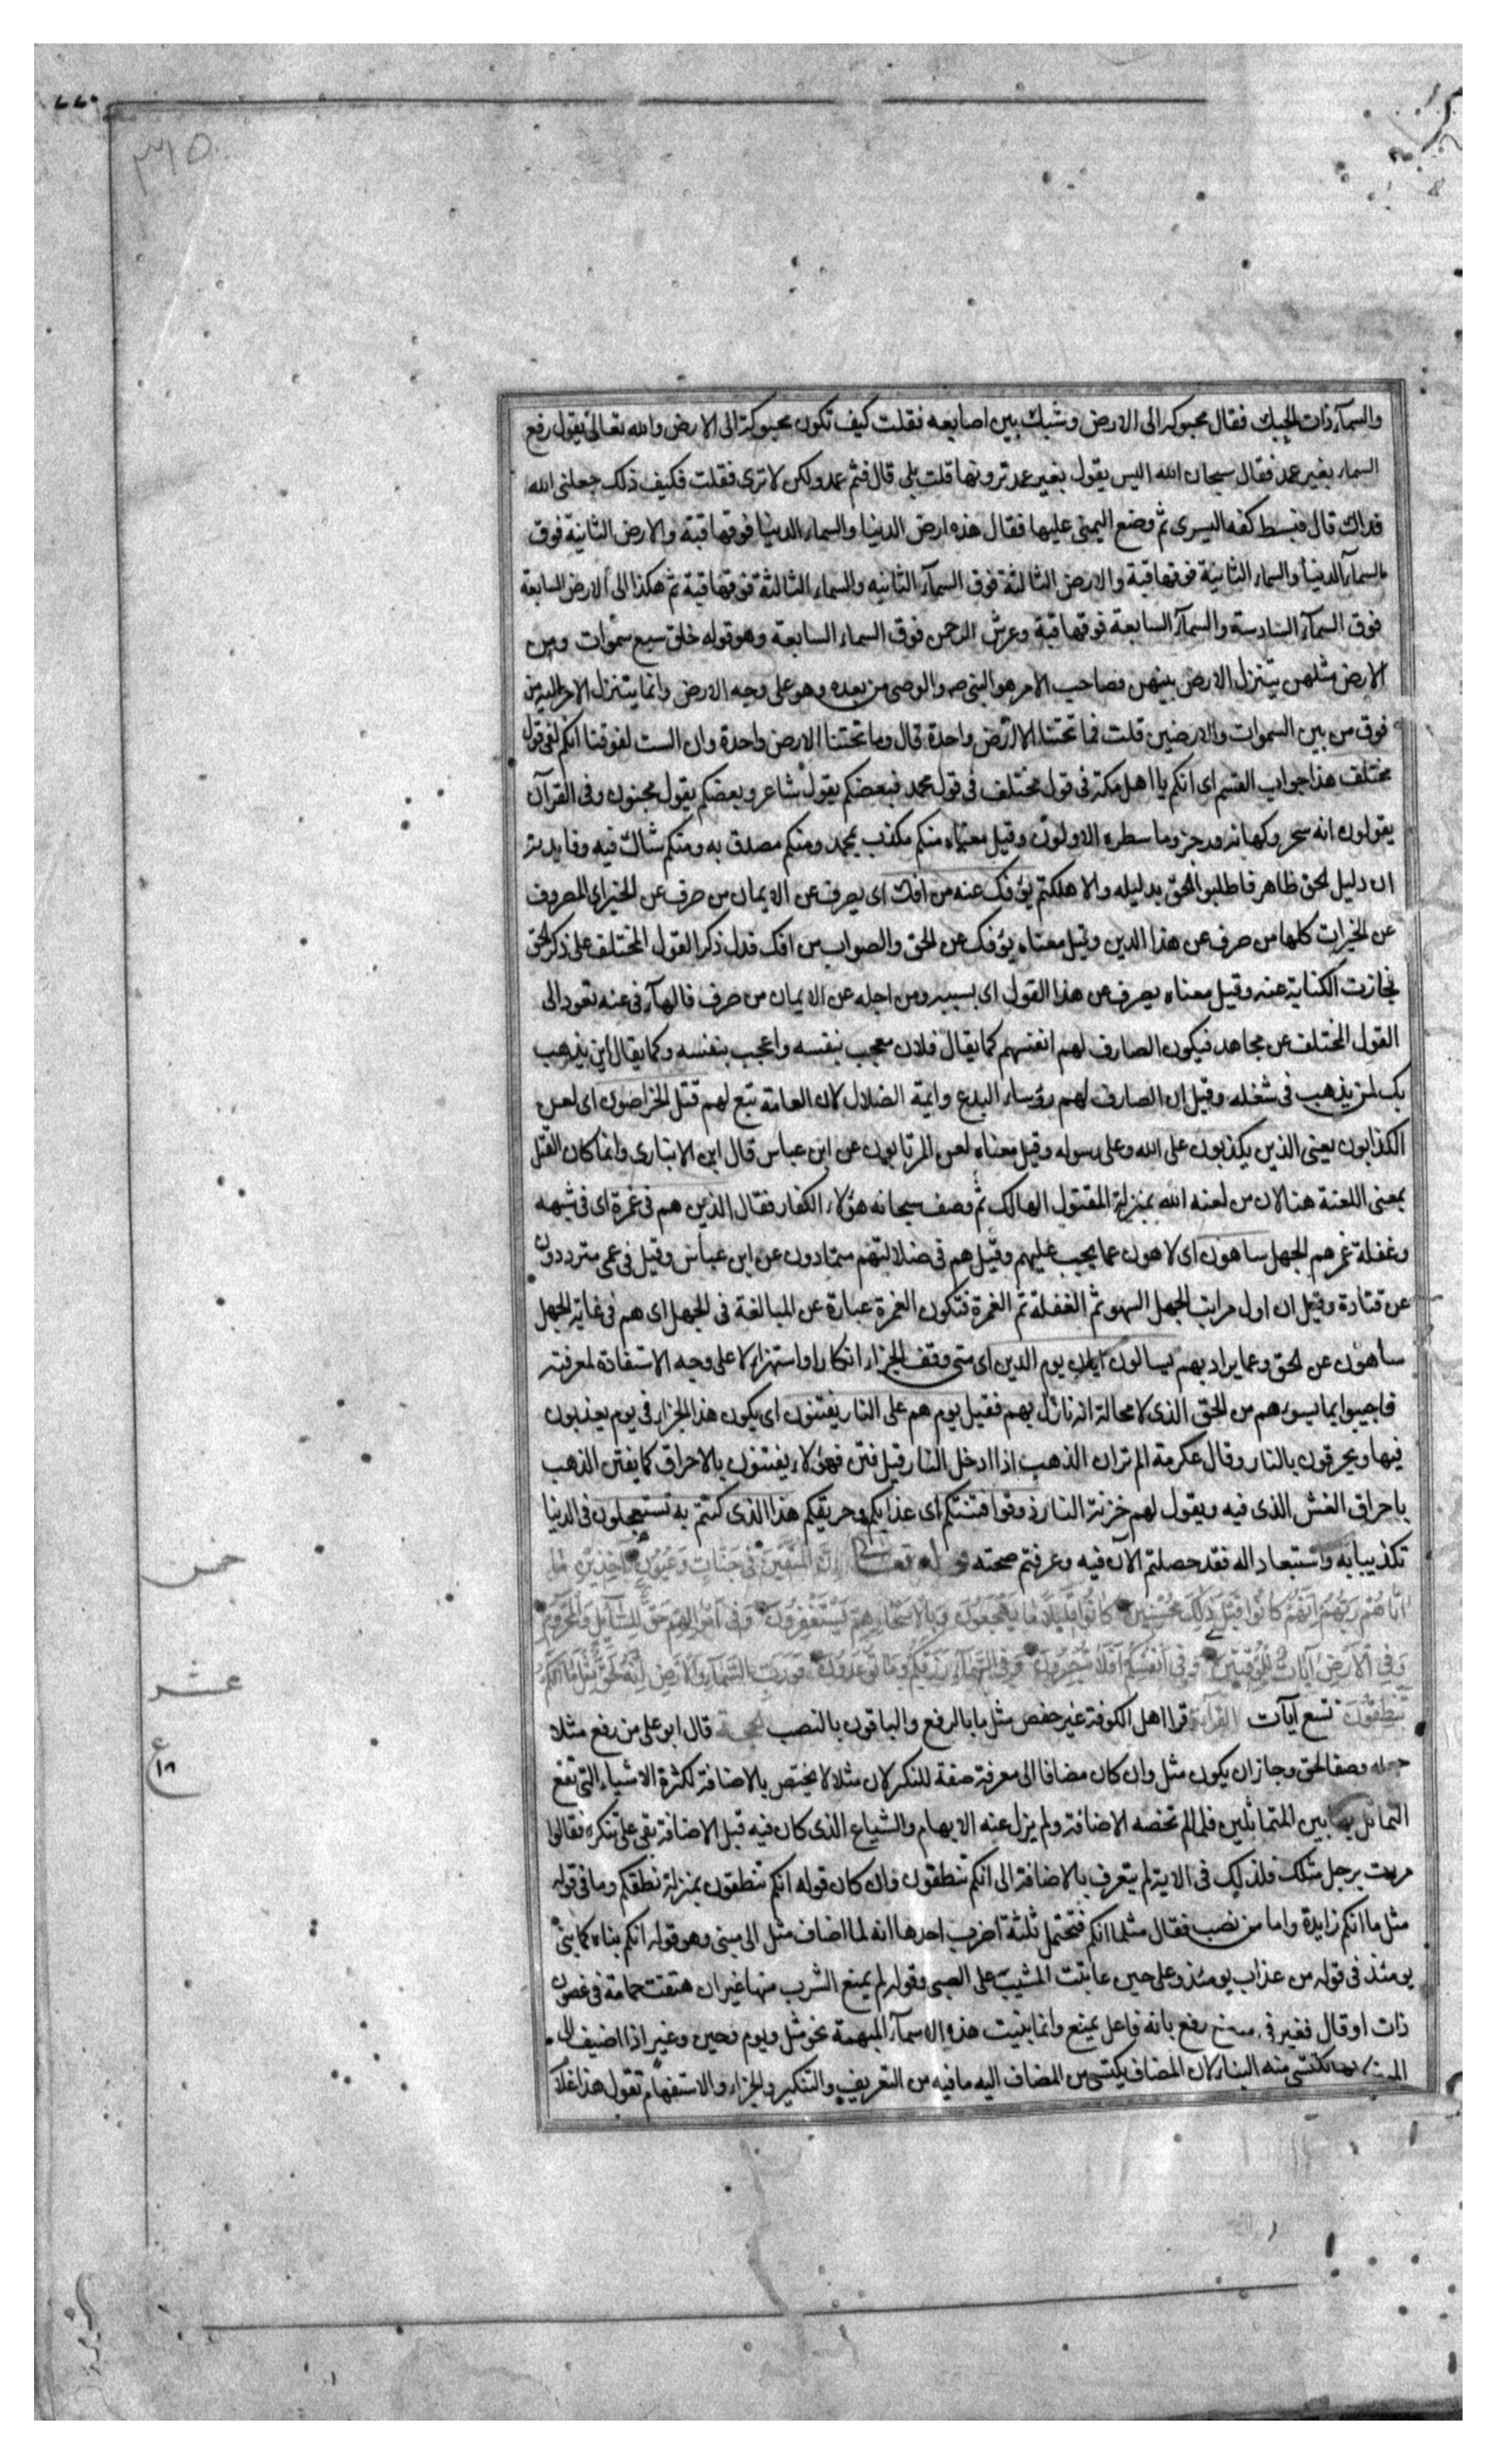 والسمآء ذات الحبك فقال محبوكة الى الارض وشبك بين اصابعه فقلت كيف تكون محبوكة الى الارض والله تعالى يقول رفع
السماء بغير عمد فقال سبحان الله اليس يقول بغير عمد ترونها قلت بلى قال فثم عمد ولكن لا ترى فقلت فكيف ذلك جعلنى الله
فداك قال فبسط كفه اليسرى ثم وضع اليمنى عليها فقال هذه ارض الدنيا والسماء الدنيا فوقها قبة والارض الثانية فوق
السمآء الدنيا والسماء الثانية فوقها قبة والارض الثالثة فوق السمآء الثانيه والسماء الثالثة فوقها قبة ثم هكذا الى الارض السابعة
فوق السمآء السادسة والسمآء السابعة فوقها قبة وعرش الرحمن فوق السماء السابعة وهو قوله خلق سبع سموات ومن
الارض مثلهن يتنزل الارض بينهن فصاحب الامر هو النبى ص والوصى من بعده وهو على وجه الارض وانما يتنزل الامر اليه من
فوق من بين السموات والارضين قلت فما تحتنا الا ارض واحدة قال وما تحتنا الا ارض واحدة وان الست لفوقنا انكم لفى قول
مختلف هذا جواب القسم اى انكم يا اهل مكة فى قول مختلف فى قول محمد فبعضكم يقول شاعر وبعضكم يقول مجنون وفى القرآن
يقولون انه سحر وكهانة ورجز وما سطره الاولون وقيل معناه منكم مكذب بمحمد ومنكم مصدق به ومنكم شاك فيه وفايدته
ان دليل الحق ظاهر فاطلبوا الحق بدليله والا هلكتم يؤفك عنه من افك اى يصرف عن الايمان من صرف عن الخير اى المصروف
عن الخيرات كلها من صرف عن هذا الدين وقيل معناه يؤفك عن الحق والصواب من افك فدل ذكر القول المختلف على ذكر الحق
فجازت الكناية عنه وقيل معناه يصرف عن هذا القول اى بسببه ومن اجله عن الايمان من صرف فالهآء فى عنه تعود الى
القول المختلف عن مجاهد فيكون الصارف لهم انفسهم كما يقال فلان معجب بنفسه واعجب بنفسه وكما يقال اين يذهب
بك لمن يذهب فى شغله وقيل ان الصارف لهم رؤساء البدع وائمة الضلال لان العامة تبع لهم قتل الخراصون اى لعن
الكذابون يعنى الذين يكذبون على الله وعلى رسوله وقيل معناه لعن المرتابون عن ابن عباس قال ابن الانبارى وانما كان القتل
بمعنى اللعنة هنا لان من لعنه الله بمنزلة المقتول الهالك ثم وصف سبحانه هؤلاء الكفار فقال الذين هم فى غمرة اى فى شبهه
وغفلة غمرهم الجهل ساهون اى لاهون عما يجب عليهم وقيل هم فى ضلالتهم متمادون عن ابن عباس وقيل فى عمى مترددون
عن قتادة وقيل ان اول مراتب الجهل السهو ثم الغفلة ثم الغمرة فتكون الغمرة عبارة عن المبالغة فى الجهل اى هم فى غاية الجهل
ساهون عن الحق وعما يراد بهم يسالون ايان يوم الدين اى متى وقف الجزاء انكارا واستهزاء لا على وجه الاستفادة لمعرفته
فاجيبوا بما يسوءهم من الحق الذى لا محالة انه نازل بهم فقيل يوم هم على النار يفتنون اى يكون هذا الجزاء فى يوم يعذبون
فيها ويحرقون بالنار وقال عكرمة الم تر ان الذهب اذا ادخل النار قيل فتن فهؤلاء يفتنون بالاحراق كما يفتن الذهب
باحراق الغش الذى فيه ويقول لهم خزنة النار ذوقوا فتنتكم اى عذابكم وحريقكم هذا الذى كنتم به تستعجلون فى الدنيا
تكذيبا به واستبعادا له فقد حصلتم الآن فيه وعرفتم صحته قوله تعالى إِنَّ الْمُتَّقِينَ فِى جَنَّاتٍ وَعُيُونٍ آخِذِينَ مَا
اتَاهُمْ رَبُّهُمْ اِنَّهُمْ كَانُوا قَبْلَ ذٰلِكَ مُحْسِنِينَ كَانُوا قَلِيلًا مَا يَهْجَعُونَ وَبِالْاَسْحَارِ هُمْ يَسْتَغْفِرُونَ وَفِى اَمْوَالِهِمْ حَقٌّ لِلسَّآئِلِ وَالْمَحْرُومِ
وَفِى الْاَرْضِ آيَاتٌ لِلْمُوقِنِينَ وَفِى اَنْفُسِكُمْ اَفَلَا تُبْصِرُونَ وَفِى السَّمَآءِ رِزْقُكُمْ وَمَا تُوعَدُونَ فَوَرَبِّ السَّمَآءِ وَالْاَرْضِ اِنَّهُ لَحَقٌّ مِثْلَ مَا اَنَّكُمْ
تَنْطِقُونَ تسع آيآت القرآءة قرا اهل الكوفة غير حفص مثل ما بالرفع والباقون بالنصب الحجة قال ابو على من رفع مثلا
جعله وصفا لحق وجاز ان يكون مثل وان كان مضافا الى معرفة صفة للنكرة لان مثلا لا يختص بالاضافة لكثرة الاشياء التى يقع
التماثل بها بين المتماثلين فلما لم تخصه الاضافة ولم يزل عنه الابهام والشياع الذى كان فيه قبل الاضافة بقى على تنكره فقالوا
مررت برجل مثلك فلذلك فى الاية لم يتعرف بالاضافة الى انكم تنطقون وان كان قوله انكم تنطقون بمنزلة نطقكم وما فى قوله
مثل ما انكم زايدة واما من نصب فقال مثل ما انكم فتحتمل ثلثة اضرب احدها انه لما اضاف مثل الى مبنى وهو قوله انكم بناه كما بنى
يومئذ فى قوله من عذاب يومئذ وعلى حين عاتبت المشيب على الصبى وقوله لم يمنع الشرب منها غير ان هتفت حمامة فى غصون
ذات اوقال فغير فى موضع رفع بانه فاعل يمنع وانما بنيت هذه الاسمآء المبهمة نحو مثل ويوم وحين وغير اذا اضيف الى
المبنى لانها تكتسى منه البناء لان المضاف يكتسى من المضاف اليه ما فيه من التعريف والتنكير والجزاء والاستفهام تقول هذا غلام
خمس
عشر
ع
١٨
٣١٥